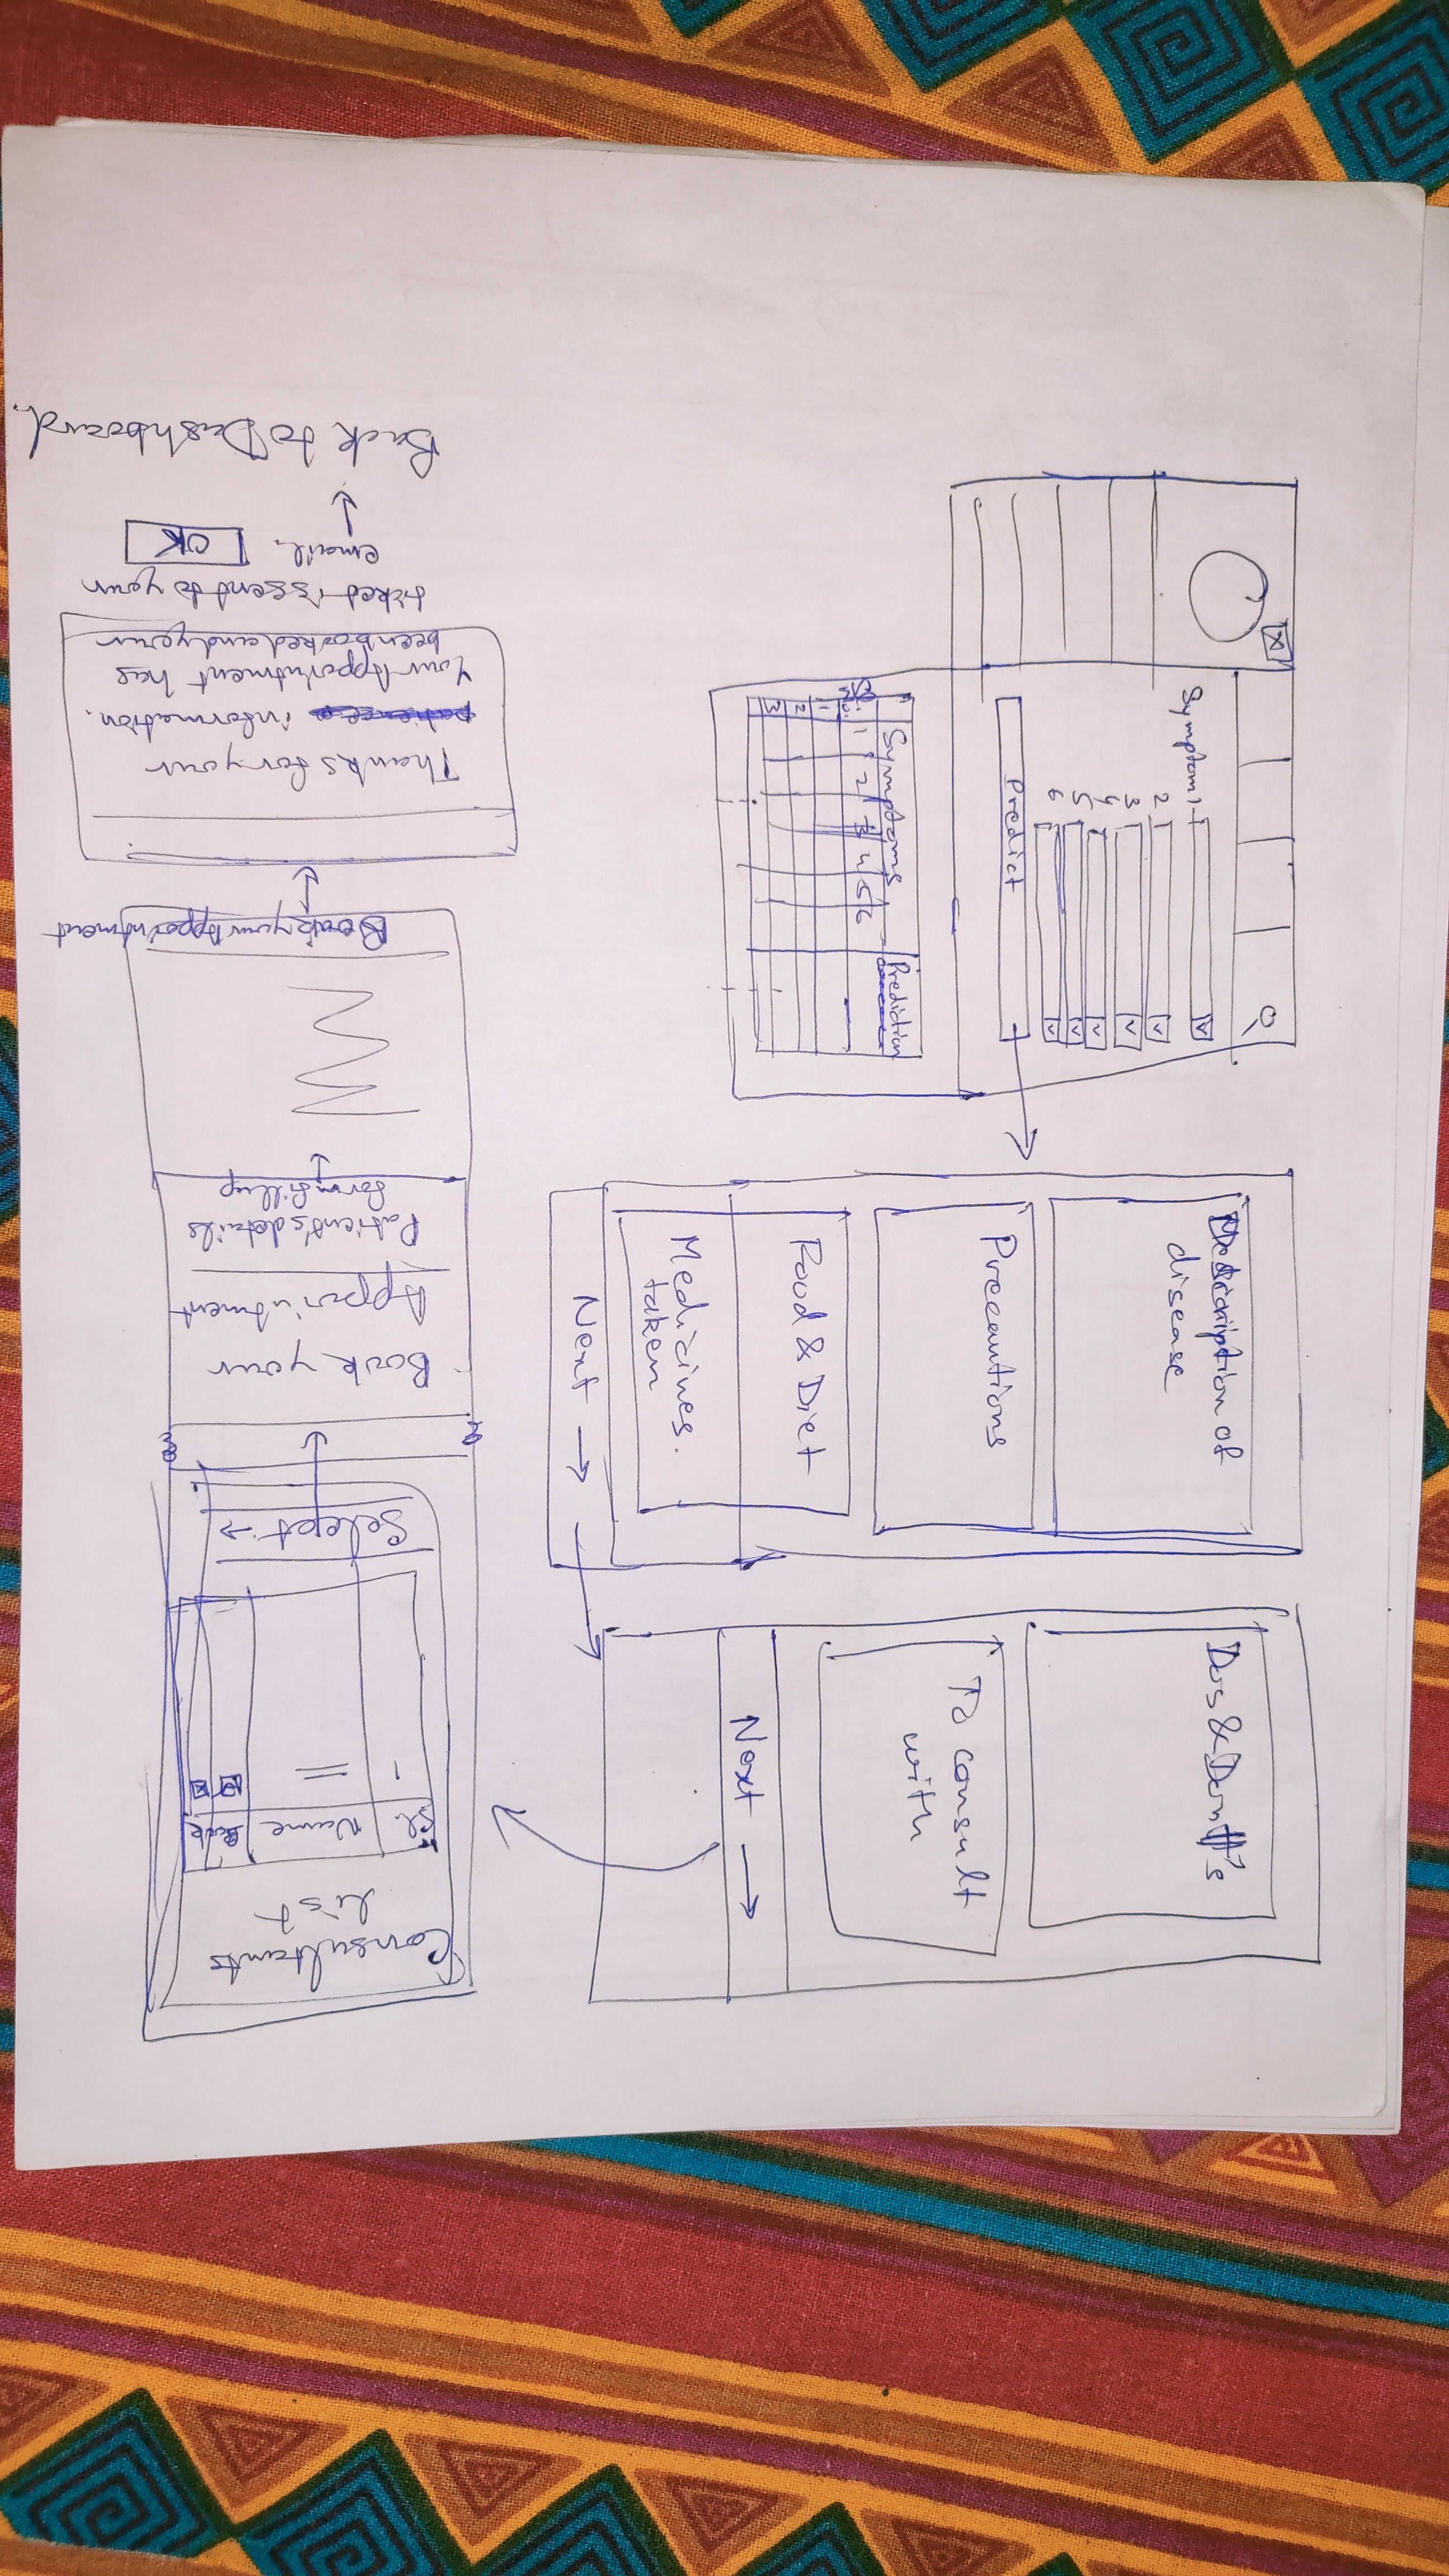 Symptom 1
2
3
4
5
6
Predict
Symptoms Prediction
1 2 3 4 5 6
Description of
disease
Precautions
Food & Diet
Medicines.
taken
Next →
Dos & Don't's
To consult
with
Next →
Consultants
list
Sl. Name Book
1
Select →
Book your
Appointment
Patient's details
form fillup
Book your Appointment
Thanks for your
information.
Your Appointment has
been booked and your
ticket is sent to your
email.
OK
Back to Dashboard.